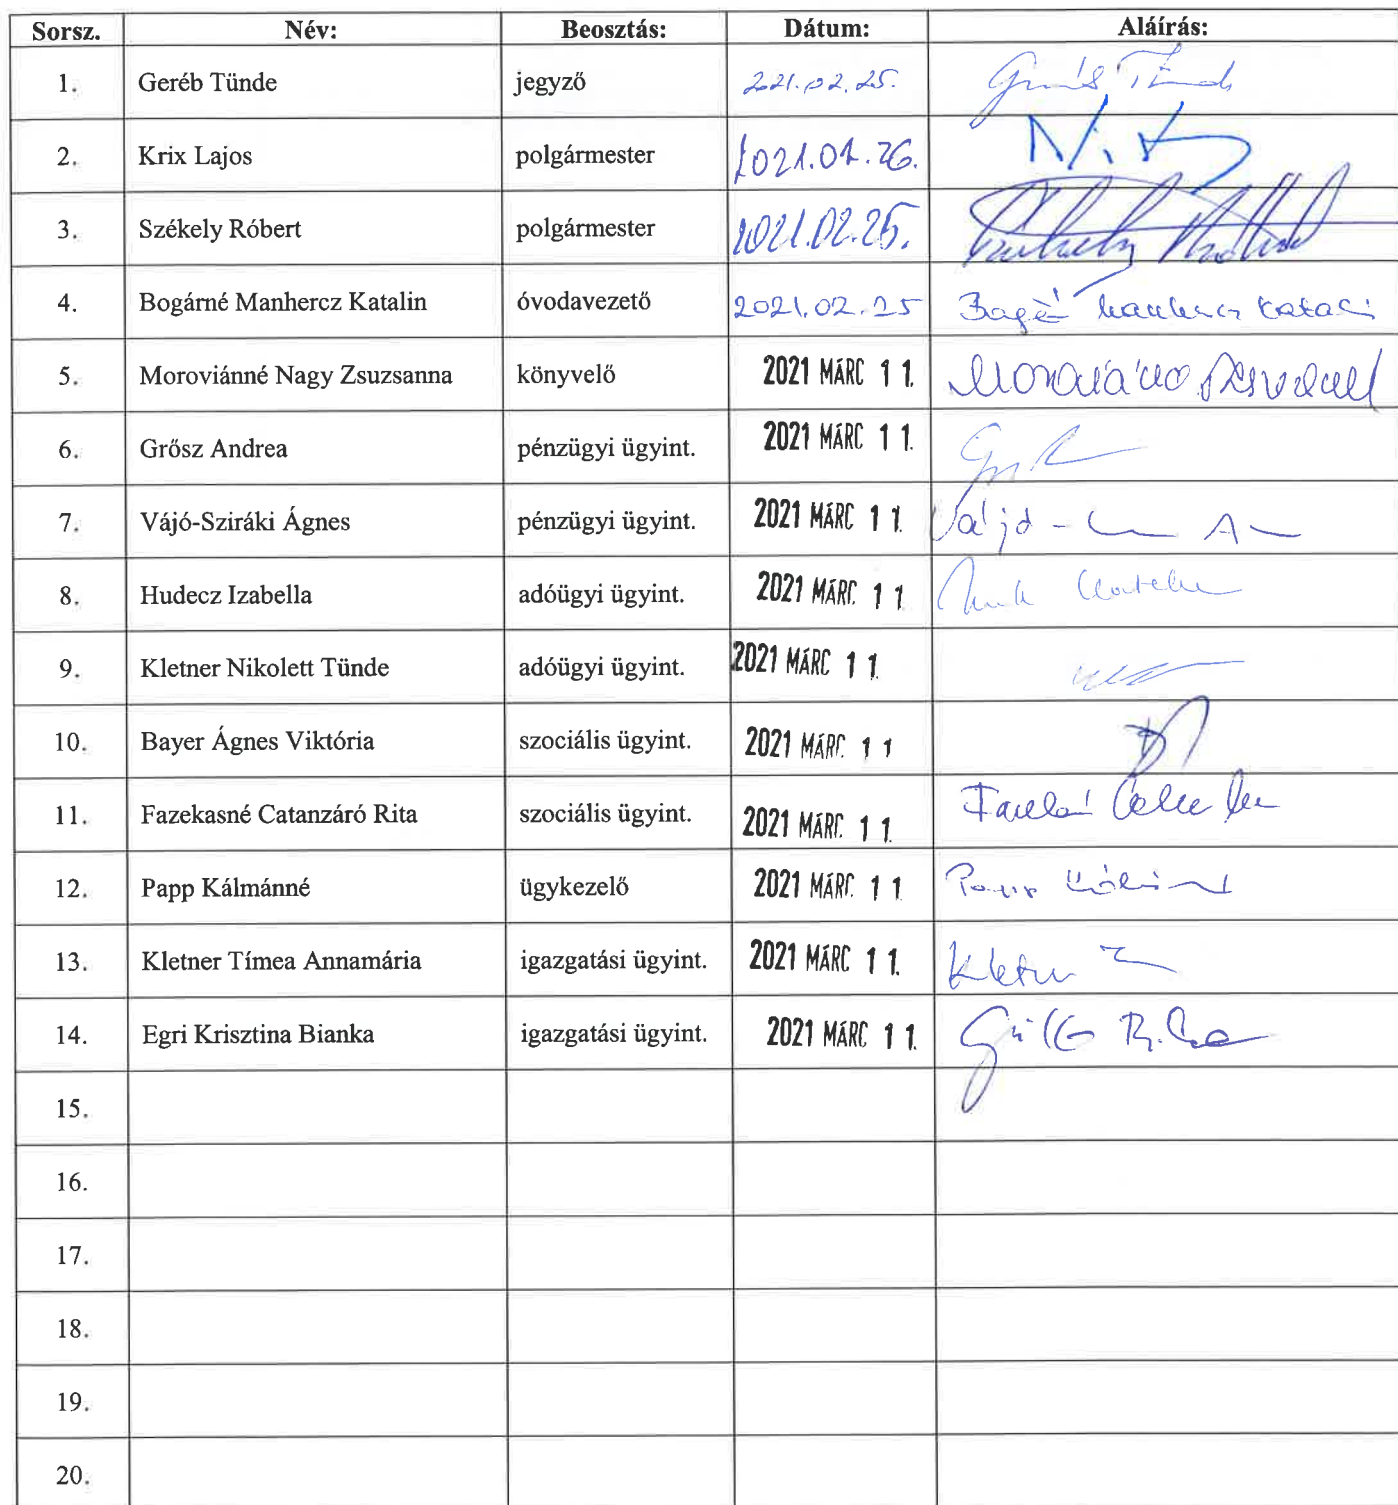 Sorsz. Név: Beosztás: Dátum: Aláírás:
1. Geréb Tünde jegyző 2021.02.25.
2. Krix Lajos polgármester
3. Székely Róbert polgármester 2021.02.25.
4. Bogárné Manhercz Katalin óvodavezető 2021.02.25
5. Moroviánné Nagy Zsuzsanna könyvelő 2021 MÁRC 11.
6. Grősz Andrea pénzügyi ügyint. 2021 MÁRC 11.
7. Vájó-Sziráki Ágnes pénzügyi ügyint. 2021 MÁRC 11.
8. Hudecz Izabella adóügyi ügyint. 2021 MÁRC. 11
9. Kletner Nikolett Tünde adóügyi ügyint. 2021 MÁRC 11.
10. Bayer Ágnes Viktória szociális ügyint. 2021 MÁRC. 11
11. Fazekasné Catanzáró Rita szociális ügyint. 2021 MÁRC. 11.
12. Papp Kálmánné ügykezelő 2021 MÁRC. 11.
13. Kletner Tímea Annamária igazgatási ügyint. 2021 MÁRC 11.
14. Egri Krisztina Bianka igazgatási ügyint. 2021 MÁRC 11.
15.
16.
17.
18.
19.
20.